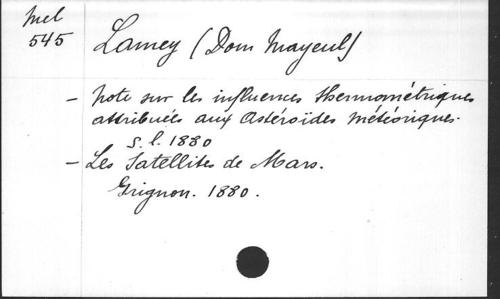 Mel
545
Lamey (Dom Mayeul)
- Note sur les influences thermométriques
attribuées aux Astéroïdes météoriques.
S. l. 1880
- Les Satellites de Mars.
Grignon. 1880.